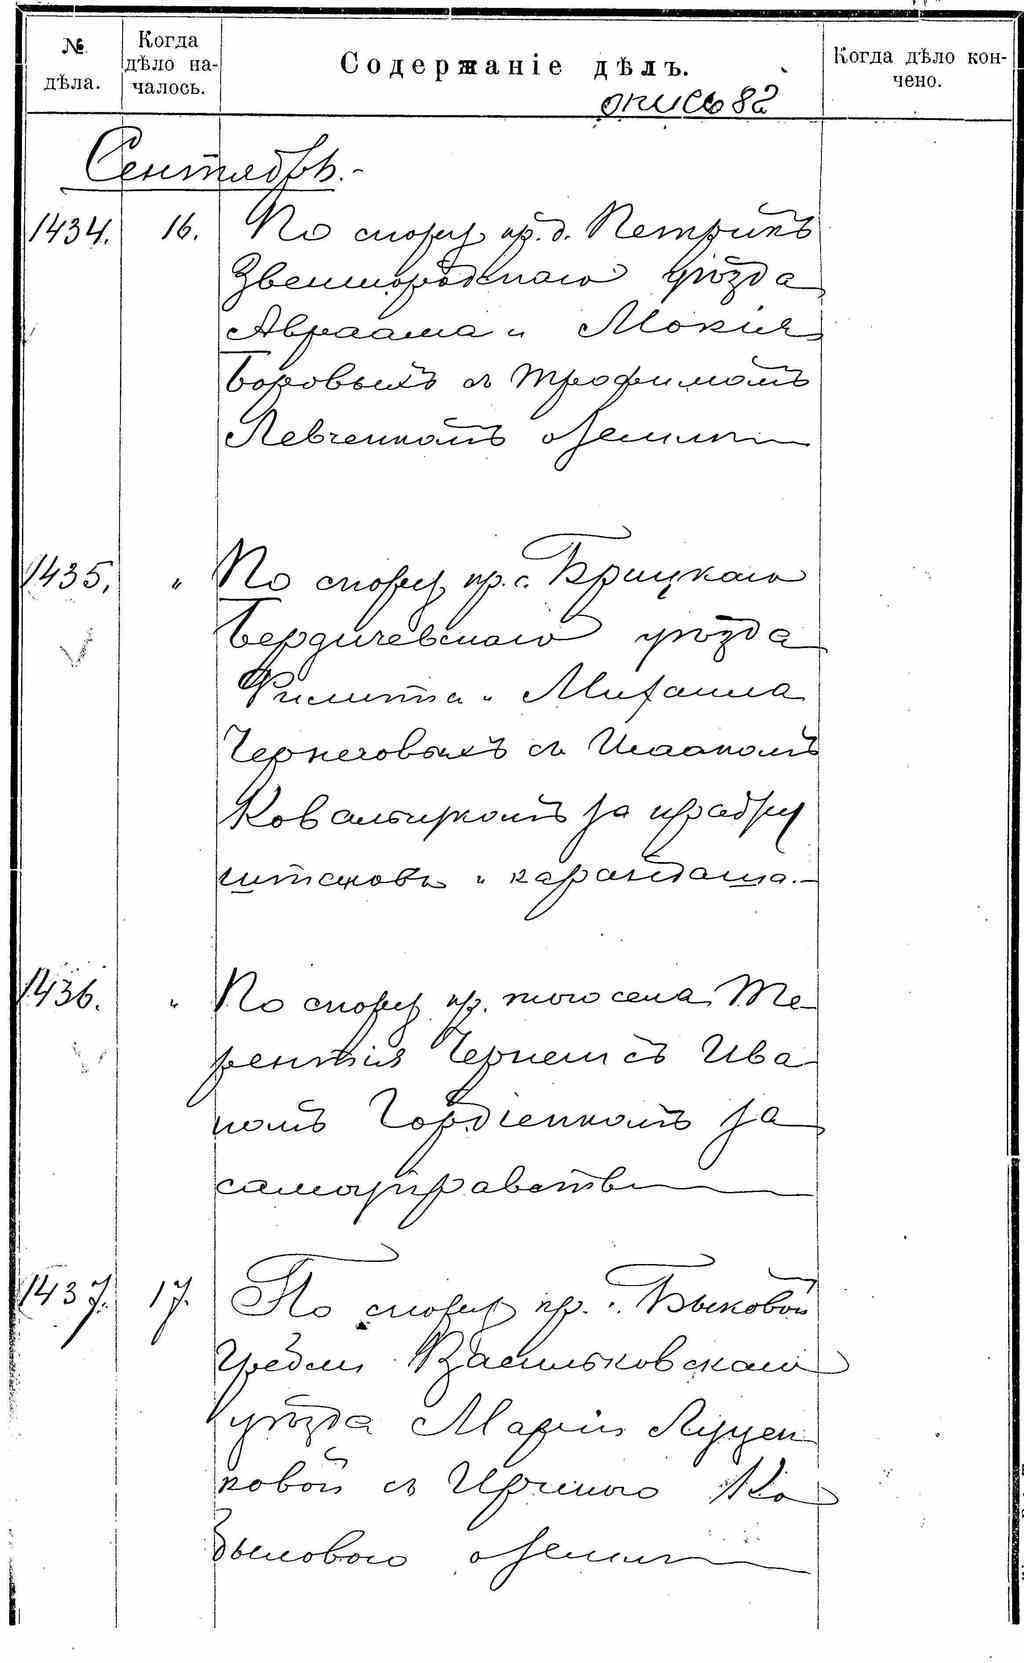 № дѣла. Когда дѣло на- чалось. Содержаніе дѣлъ. Когда дѣло кон- чено.
опись 82
Сентябрь.-
1434. 16. По спору кр. д. Петрикъ
Звенигородскаго уѣзда
Авраама и Мокія
Боровыхъ съ Трофимомъ
Левченкомъ о земли
1435. " По спору кр. с. Брицкаго
Бердичевскаго уѣзда
Филиппа и Михаила
Черниговыхъ съ Исаакомъ
Ковальчукомъ за
штановъ и карандаша.-
1436. " По спору кр. того села Те-
рентія Чернеги съ Ива-
номъ Гордіенкомъ за
самоуправство
1437. 17. По спору кр. с. Быковой
Гребли Васильковскаго
уѣзда Маріи Луцен
ковой съ Ириною Ко
былового о земли